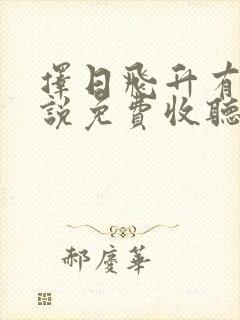 擇日飛升有
說免費收聽
郝慶華